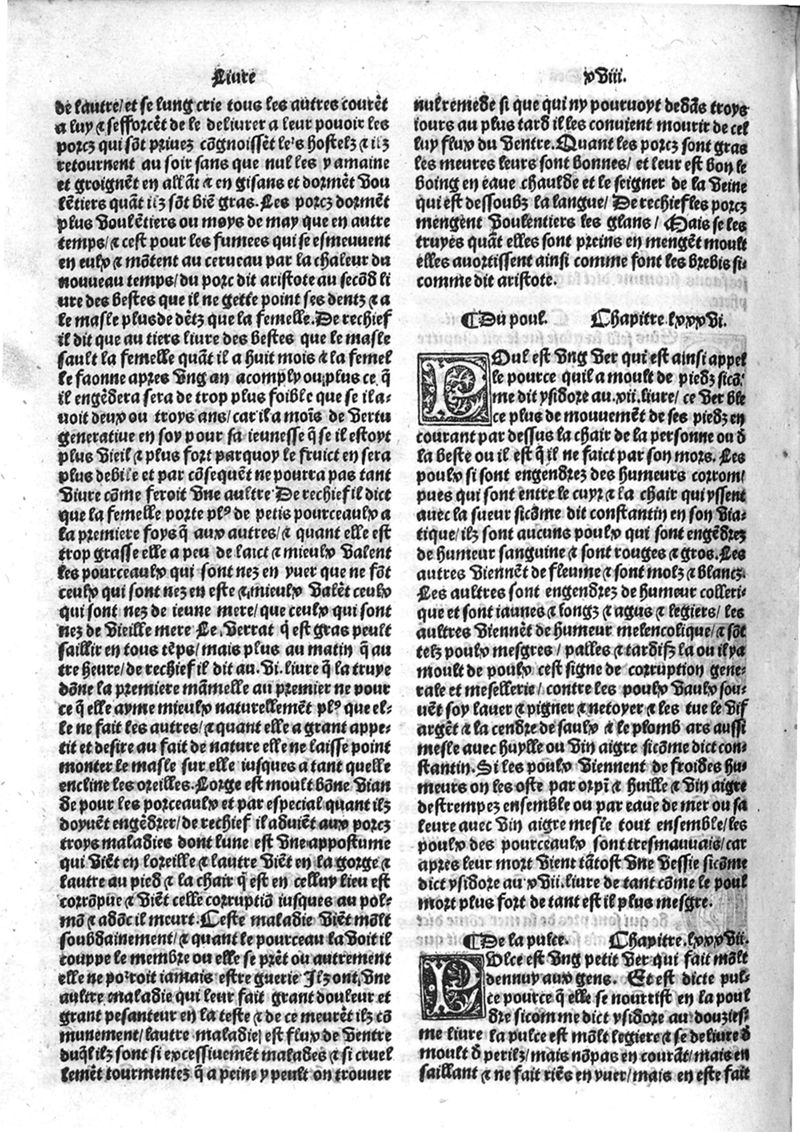 Livre
de lautre/et se lung crie tous les autres courẽt
a luy ⁊ sefforcẽt de le delivrer a leur pouoir les
porcz qui sõt privez cõgnoissẽt le's hostelz ⁊ ilz
retournent au soir sans que nul les y amaine
et groignẽt en allãt ⁊ en gisans et dormẽt vou
lẽtiers quãt ilz sõt biẽ gras. Les porcz dormẽt
plus voulẽtiers ou moys de may que en autre
temps/⁊ cest pour les fumees qui se esmeuvent
en eulx ⁊ mõtent au cerveau par la chaleur du
nouveau temps/du porc dit aristote au secõd li
vre des bestes que il ne gette point ses dentz ⁊ a
le masle plus de dẽtz que la femelle. De rechief
il dit que au tiers livre des bestes que le masle
sault la femelle quãt il a huit mois ⁊ la femel
le faonne apres ung an acomply ou plus ce q̃
il engẽdera sera de trop plus foible que se il a-
voit deux ou troys ans/car il a moĩs de vertu
generative en soy pour sa ieunesse q̃ se il estoyt
plus vieil ⁊ plus fort parquoy le fruict en sera
plus debile et par cõsequẽt ne pourra pas tant
vivre cõme feroit une aultre De rechief il dict
que la femelle porte plꝰ de petis pourceaulx a
la premiere foys q̃ aux autres/⁊ quant elle est
trop grasse elle a peu de laict ⁊ mieulx valent
les pourceaulx qui sont nez en yver que ne fõt
ceulx qui sont nez en este ⁊ mieulx valẽt ceulx
qui sont nez de ieune mere/que ceulx qui sont
nez de vieille mere Le. verrat q̃ est gras peult
saillir en tous tẽps/mais plus au matin q̃ au
tre heure/de rechief il dit au. vi. livre q̃ la truye
dõne la premiere mãmelle au premier ne pour
ce q̃ elle ayme mieulx naturellemẽt plꝰ que el-
le ne fait les autres/⁊ quant elle a grant appe-
tit et desire au fait de nature elle ne laisse point
monter le masle sur elle iusques a tant quelle
encline les oreilles. Lorge est moult bõne vian
de pour les porceaulx et par especial quant ilz
doyvẽt engẽdrer/de rechief il adviẽt aux porcz
troys maladies dont lune est une appostume
qui viẽt en loreille ⁊ lautre viẽt en la gorge ⁊
lautre au pied ⁊ la chair q̃ est en celluy lieu est
corrõpue ⁊ viẽt celle corruptiõ iusques au pol-
mõ ⁊ adõc il meurt. Ceste maladie viẽt mõlt
soubdainement/⁊ quant le pourceau la voit il
couppe le membre ou elle se prẽt ou autrement
elle ne po'roit iamais estre guerie Ilz ont, une
aultre maladie qui leur fait grant douleur et
grant pesanteur en la teste ⁊ de ce meurẽt ilz cõ
munement/lautre maladie est flux de ventre
duq̃l ilz sont si excessivemẽt malades ⁊ si cruel
lemẽt tourmentez q̃ a peine y peult on trouver
xviii.
nul remede si que qui ny pourvoyt dedãs troys
iours au plus tard il les convient mourir de cel
luy flux du ventre. Quant les porcz sont gras
les meures leurs sont bonnes/ et leur est bon le
boing en eaue chaulde et le seigner de la veine
qui est dessoubz la langue/De rechief les porcz
mengent voulentiers les glans/ Mais se les
truyes quãt elles sont preins en mengẽt moult
elles avortissent ainsi comme font les brebis si-
comme dit aristote.
¶Du poul. Chapitre. lxxxvi.
POul est ung ver qui est ainsi appel
le pource quil a moult de piedz sicõ-
me dit ysidore au. xii. livre/ ce ver ble
ce plus de mouvement de ses piedz en
courant par dessus la chair de la personne ou d̃
la beste ou il est q̃ il ne faict par son mors. Les
poulx si sont engendrez des humeurs corrom/
pues qui sont entre le cuyr ⁊ la chair qui yssent
avec la sueur sicõme dit constantin en son via-
tique/ilz sont aucuns poulx qui sont engẽdrez
de humeur sanguine ⁊ sont rouges ⁊ gros. Les
autres viennẽt de fleume ⁊ sont molz ⁊ blancz.
Les aultres sont engendrez de humeur colleri-
que et sont iaunes ⁊ longz ⁊ agus ⁊ legiers/ les
aultres viennẽt de humeur melencolique/⁊ sõt
telz poulx mesgres/ palles ⁊ tardifz la ou il ya
moult de poulx cest signe de corruption gene-
rale et mesellerie/ contre les poulx vaulx sou-
vẽt soy laver ⁊ pigner ⁊ netoyer ⁊ les tue le vif
argẽt ⁊ la cendre de saulx ⁊ le plomb ars aussi
mesle avec huylle ou vin aigre sicõme dict con-
stantin. Si les poulx viennent de froides hu-
meurs on les oste par orpĩ ⁊ huille ⁊ vin aigre
destrempez ensemble ou par eaue de mer ou sa
leure avec vin aigre mesle tout ensemble/les
poulx des pourceaulx sont tresmauvais/car
apres leur mort vient tãtost une vessie sicõme
dict ysidore au xii. livre de tant cõme le poul
mort plus fort de tant est il plus mesgre.
¶De la pulce. Chapitre. lxxxvii.
PUlce est ung petit ver qui fait mõlt
dennuy aux gens. Et est dicte pul-
ce pource q̃ elle se nourrist en la poul
dre sicomme dict ysidore au douzies-
me livre la pulce est mõlt legiere ⁊ se delivre d̃
moult d̃ perilz/mais nõpas en courãt/mais en
saillant ⁊ ne fait riẽs en yver/mais en este fait